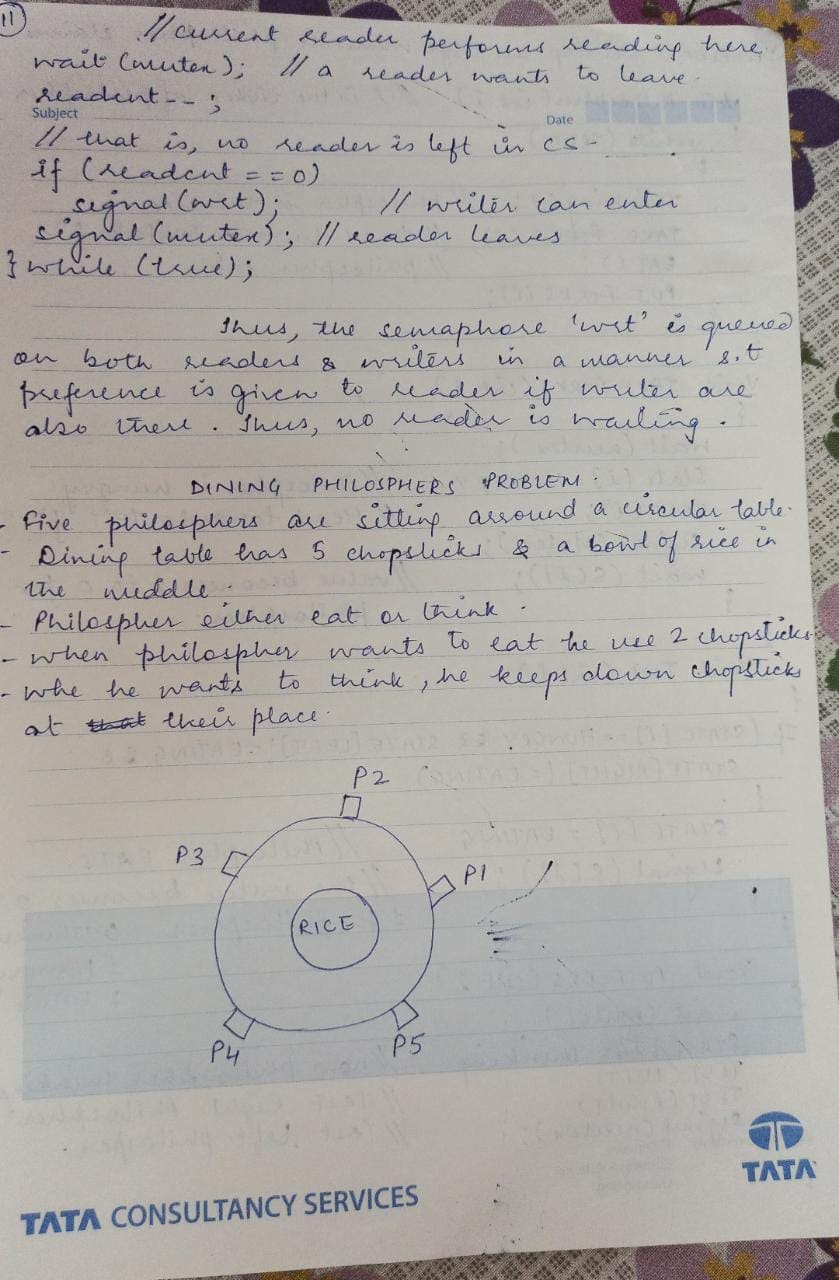 11
// current reader performs reading here.
wait (mutex); // a reader wants to leave.
readcnt -- ;
Subject Date
// that is, no reader is left in CS -
if (readcnt = = 0)
signal (wrt); // writer can enter
signal (mutex); // reader leaves
} while (true);
Thus, the semaphore 'wrt' is queued
on both readers & writers in a manner s.t
preference is given to reader if writer are
also there. Thus, no reader is waiting.
DINING PHILOSPHERS PROBLEM.
- Five philosphers are sitting arround a circular table.
- Dining table has 5 chopsticks & a bowl of rice in
the middle.
- Philospher either eat or think.
- when philospher wants to eat he use 2 chopsticks.
- whe he wants to think, he keeps down chopsticks
at that their place.
P2
P3
P1
RICE
P4
P5
TATA
TATA CONSULTANCY SERVICES